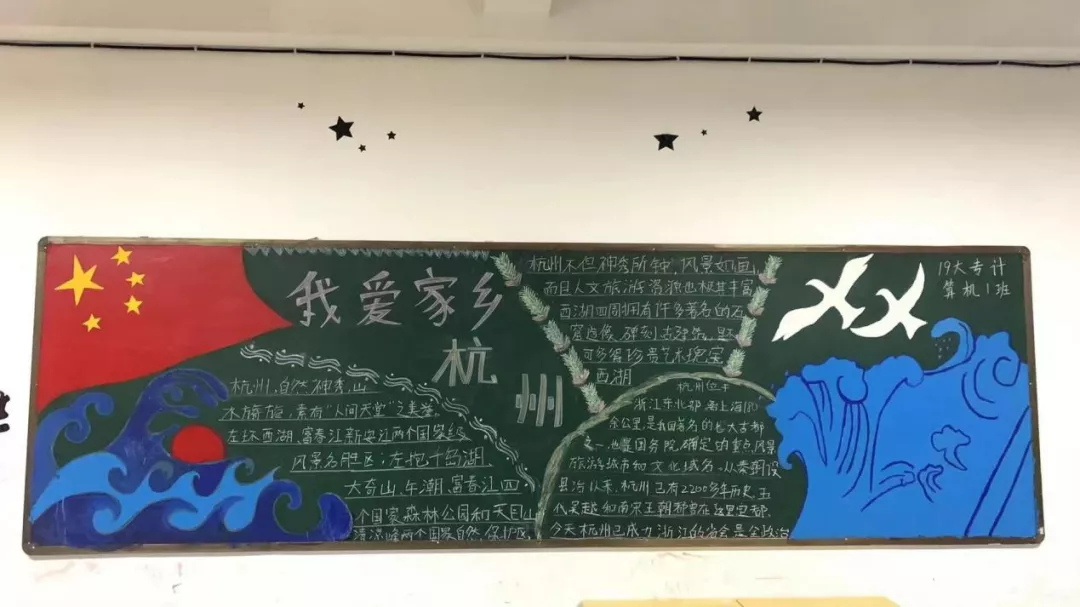 我爱家乡
杭
州
杭州，自然神秀，山
水旖旎，素有"人间天堂"之美誉。
左环西湖，富春江新安江两个国家级
风景名胜区；左抱千岛湖
大奇山，午潮，富春江四
个国家森林公园和天目山
清凉峰两个国家自然保护区
杭州不但神秀所钟，风景如画，
而且人文旅游资源也极其丰富
西湖四周拥有许多著名的石
窟造像，碑刻古建筑，
可多得珍贵艺术瑰宝
西湖
杭州位于
浙江东北部，离上海180
余公里，是我国著名的七大古都
之一，也是国务院确定的重点风景
旅游城市和文化城名。从秦朝设
县治以来，杭州已有2200多年历史，五
代吴越和南宋王朝都曾在这里定都。
今天杭州已成为浙江的省会是全政治
19大专计
算机1班